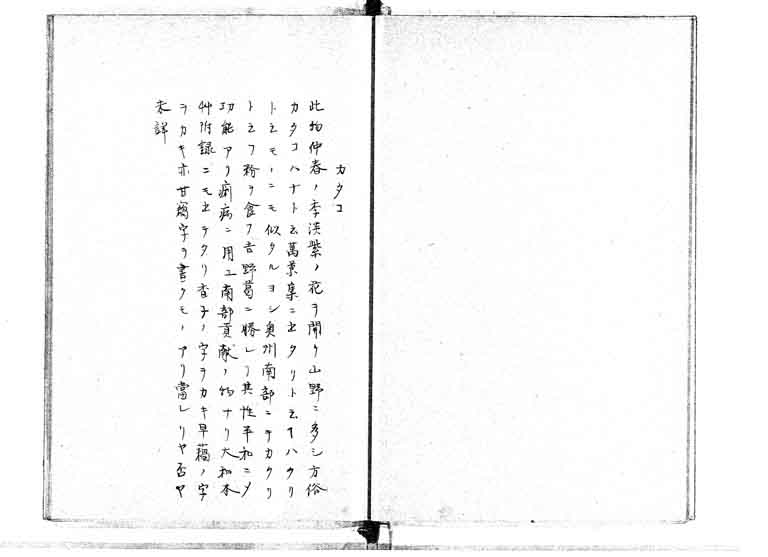 カタコ
此物仲春ノ季淡紫ノ花ヲ開ク山野ニ多シ方俗
カタコハナト云萬葉集ニ出タリト云ハクリ
ト云モノニモ似タルヨシ奥州南部ニテカタクリ
ト云フ粉ヲ食フ吉野葛ニ勝レリ其性平和ニメ
功能アリ痢病ニ用ユ南部貢献ノ物ナリ大和本
艸附録ニモ出テタリ ノ字ヲカキ旱藕ノ字
ヲカキ亦甘 字ヲ書クモノアリ當レリヤ否ヤ
未詳